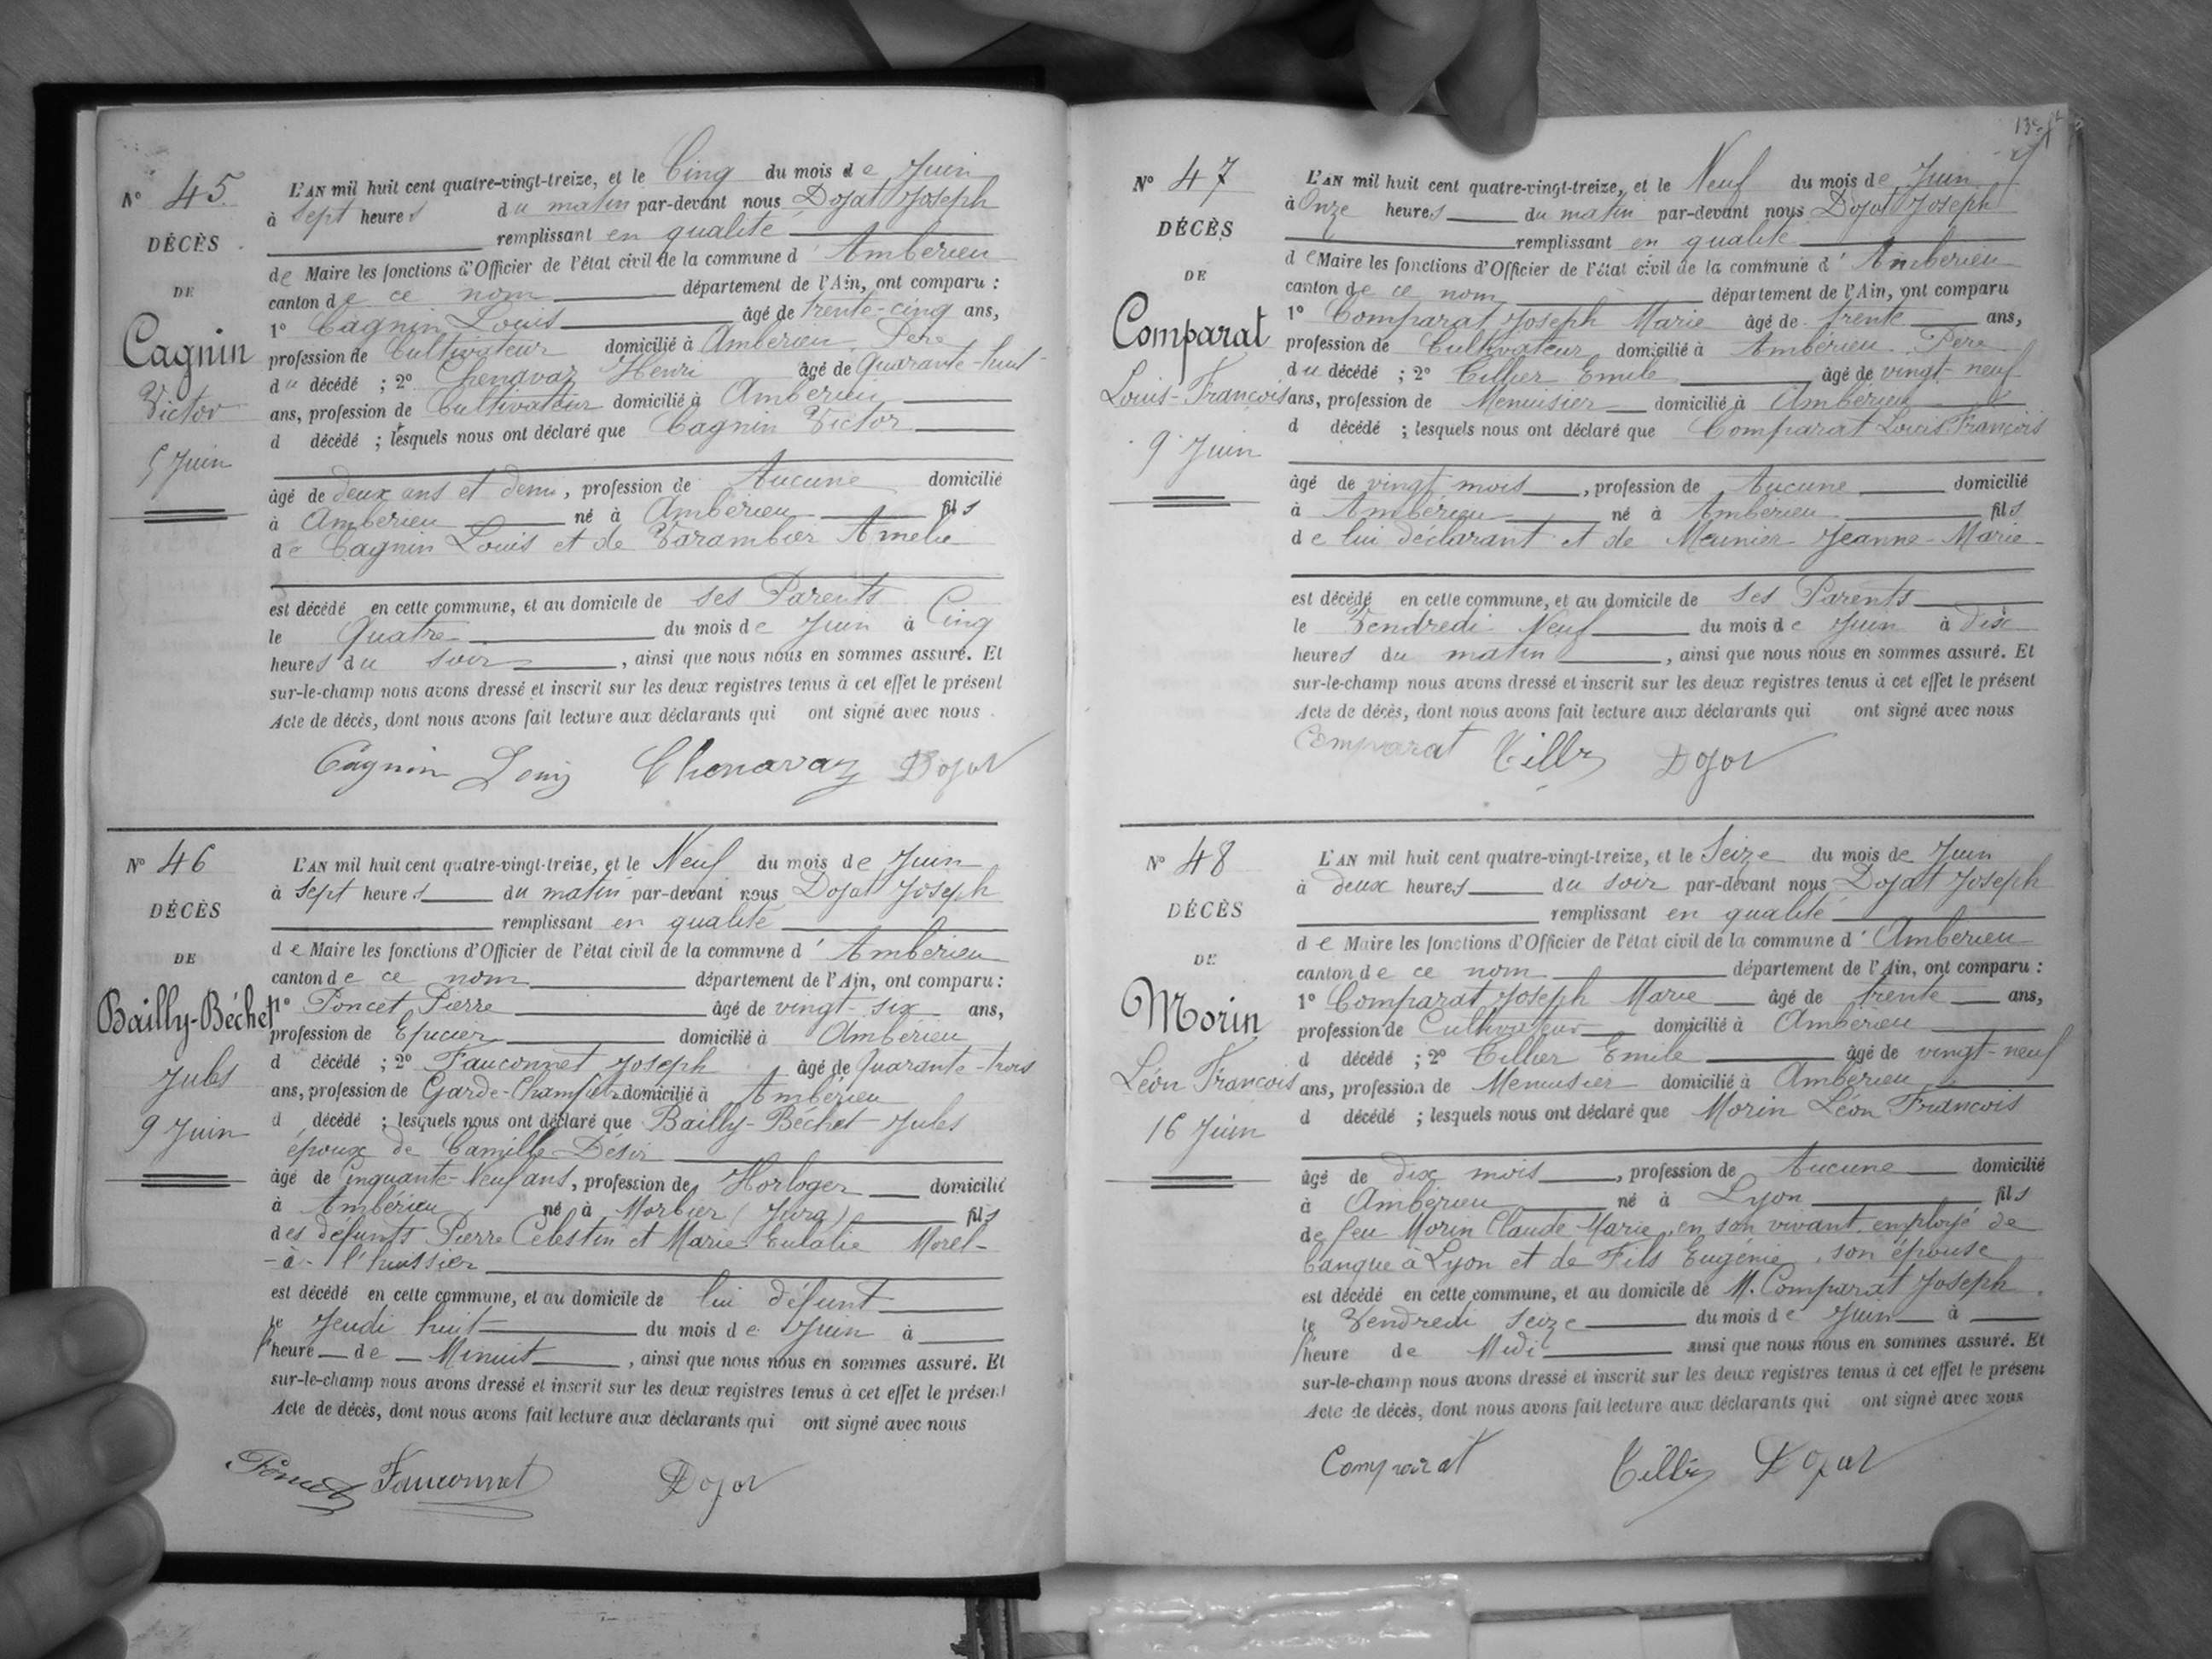 N° 45
DÉCÈS
DE
Cagnin
Victor
5 Juin
L'AN mil huit cent quatre-vingt-treize, et le Cinq du mois de Juin
à Sept heures du matin par-devant nous Dojat Joseph
remplissant en qualité
de Maire les fonctions d'Officier de l'état civil de la commune d'Ambérieu
canton de ce nom département de l'Ain, ont comparu :
1° Cagnin Louis âgé de trente-cinq ans,
profession de Cultivateur domicilié à Ambérieu Père
du décédé ; 2° Chenavaz Henri âgé de Quarante-huit
ans, profession de Cultivateur domicilié à Ambérieu
d décédé ; lesquels nous ont déclaré que Cagnin Victor
âgé de deux ans et demi, profession de Aucune domicilié
à Ambérieu né à Ambérieu fils
de Cagnin Louis et de Varambier Amélie
est décédé en cette commune, et au domicile de ses Parents
le Quatre du mois de Juin à Cinq
heures du soir, ainsi que nous nous en sommes assuré. Et
sur-le-champ nous avons dressé et inscrit sur les deux registres tenus à cet effet le présent
Acte de décès, dont nous avons fait lecture aux déclarants qui ont signé avec nous.
Cagnin Louis Chenavaz Dojat
N° 46
DÉCÈS
DE
Bailly-Béchet
Jules
9 Juin
L'AN mil huit cent quatre-vingt-treize, et le Neuf du mois de Juin
à Sept heures du matin par-devant nous Dojat Joseph
remplissant en qualité
de Maire les fonctions d'Officier de l'état civil de la commune d'Ambérieu
canton de ce nom département de l'Ain, ont comparu :
1° Poncet Pierre âgé de vingt-six ans,
profession de Epicier domicilié à Ambérieu
d décédé ; 2° Fauconnet Joseph âgé de Quarante-trois
ans, profession de Garde-Champêtre domicilié à Ambérieu
d décédé ; lesquels nous ont déclaré que Bailly-Béchet Jules
époux de Camille Désir
âgé de Cinquante-Neuf ans, profession de Horloger domicilié
à Ambérieu né à Morbier (Jura) fils
des défunts Pierre Célestin et Marie Eulalie Morel-
-à-l'huissier
est décédé en cette commune, et au domicile de lui défunt
le Jeudi huit du mois de Juin à
l'heure de Minuit, ainsi que nous nous en sommes assuré. Et
sur-le-champ nous avons dressé et inscrit sur les deux registres tenus à cet effet le présent
Acte de décès, dont nous avons fait lecture aux déclarants qui ont signé avec nous
Poncet Fauconnet Dojat
N° 47
DÉCÈS
DE
Comparat
Louis-François
9 Juin
L'AN mil huit cent quatre-vingt-treize, et le Neuf du mois de Juin
à Onze heures du matin par-devant nous Dojat Joseph
remplissant en qualité
de Maire les fonctions d'Officier de l'état civil de la commune d'Ambérieu
canton de ce nom département de l'Ain, ont comparu
1° Comparat Joseph Marie âgé de trente ans,
profession de Cultivateur domicilié à Ambérieu Père
du décédé ; 2° Cillier Emile âgé de vingt-neuf
ans, profession de Menuisier domicilié à Ambérieu
d décédé ; lesquels nous ont déclaré que Comparat Louis François
âgé de vingt mois, profession de Aucune domicilié
à Ambérieu né à Ambérieu fils
de lui déclarant et de Meunier Jeanne-Marie
est décédé en cette commune, et au domicile de ses Parents
le Vendredi Neuf du mois de Juin à dix
heures du matin, ainsi que nous nous en sommes assuré. Et
sur-le-champ nous avons dressé et inscrit sur les deux registres tenus à cet effet le présent
Acte de décès, dont nous avons fait lecture aux déclarants qui ont signé avec nous
Comparat Dojat
N° 48
DÉCÈS
DE
Morin
Léon François
16 Juin
L'AN mil huit cent quatre-vingt-treize, et le Seize du mois de Juin
à deux heures du soir par-devant nous Dojat Joseph
remplissant en qualité
de Maire les fonctions d'Officier de l'état civil de la commune d'Ambérieu
canton de ce nom département de l'Ain, ont comparu :
1° Comparat Joseph Marie âgé de trente ans,
profession de Cultivateur domicilié à Ambérieu
d décédé ; 2° Cillier Emile âgé de vingt-neuf
ans, profession de Menuisier domicilié à Ambérieu
d décédé ; lesquels nous ont déclaré que Morin Léon François
âgé de dix mois, profession de Aucune domicilié
à Ambérieu né à Lyon fils
de feu Morin Claude Marie, en son vivant employé de
banque à Lyon et de Fils Eugénie, son épouse
est décédé en cette commune, et au domicile de M. Comparat Joseph
le Vendredi Seize du mois de Juin à
l'heure de Midi ainsi que nous nous en sommes assuré. Et
sur-le-champ nous avons dressé et inscrit sur les deux registres tenus à cet effet le présent
Acte de décès, dont nous avons fait lecture aux déclarants qui ont signé avec nous
Comparat Dojat